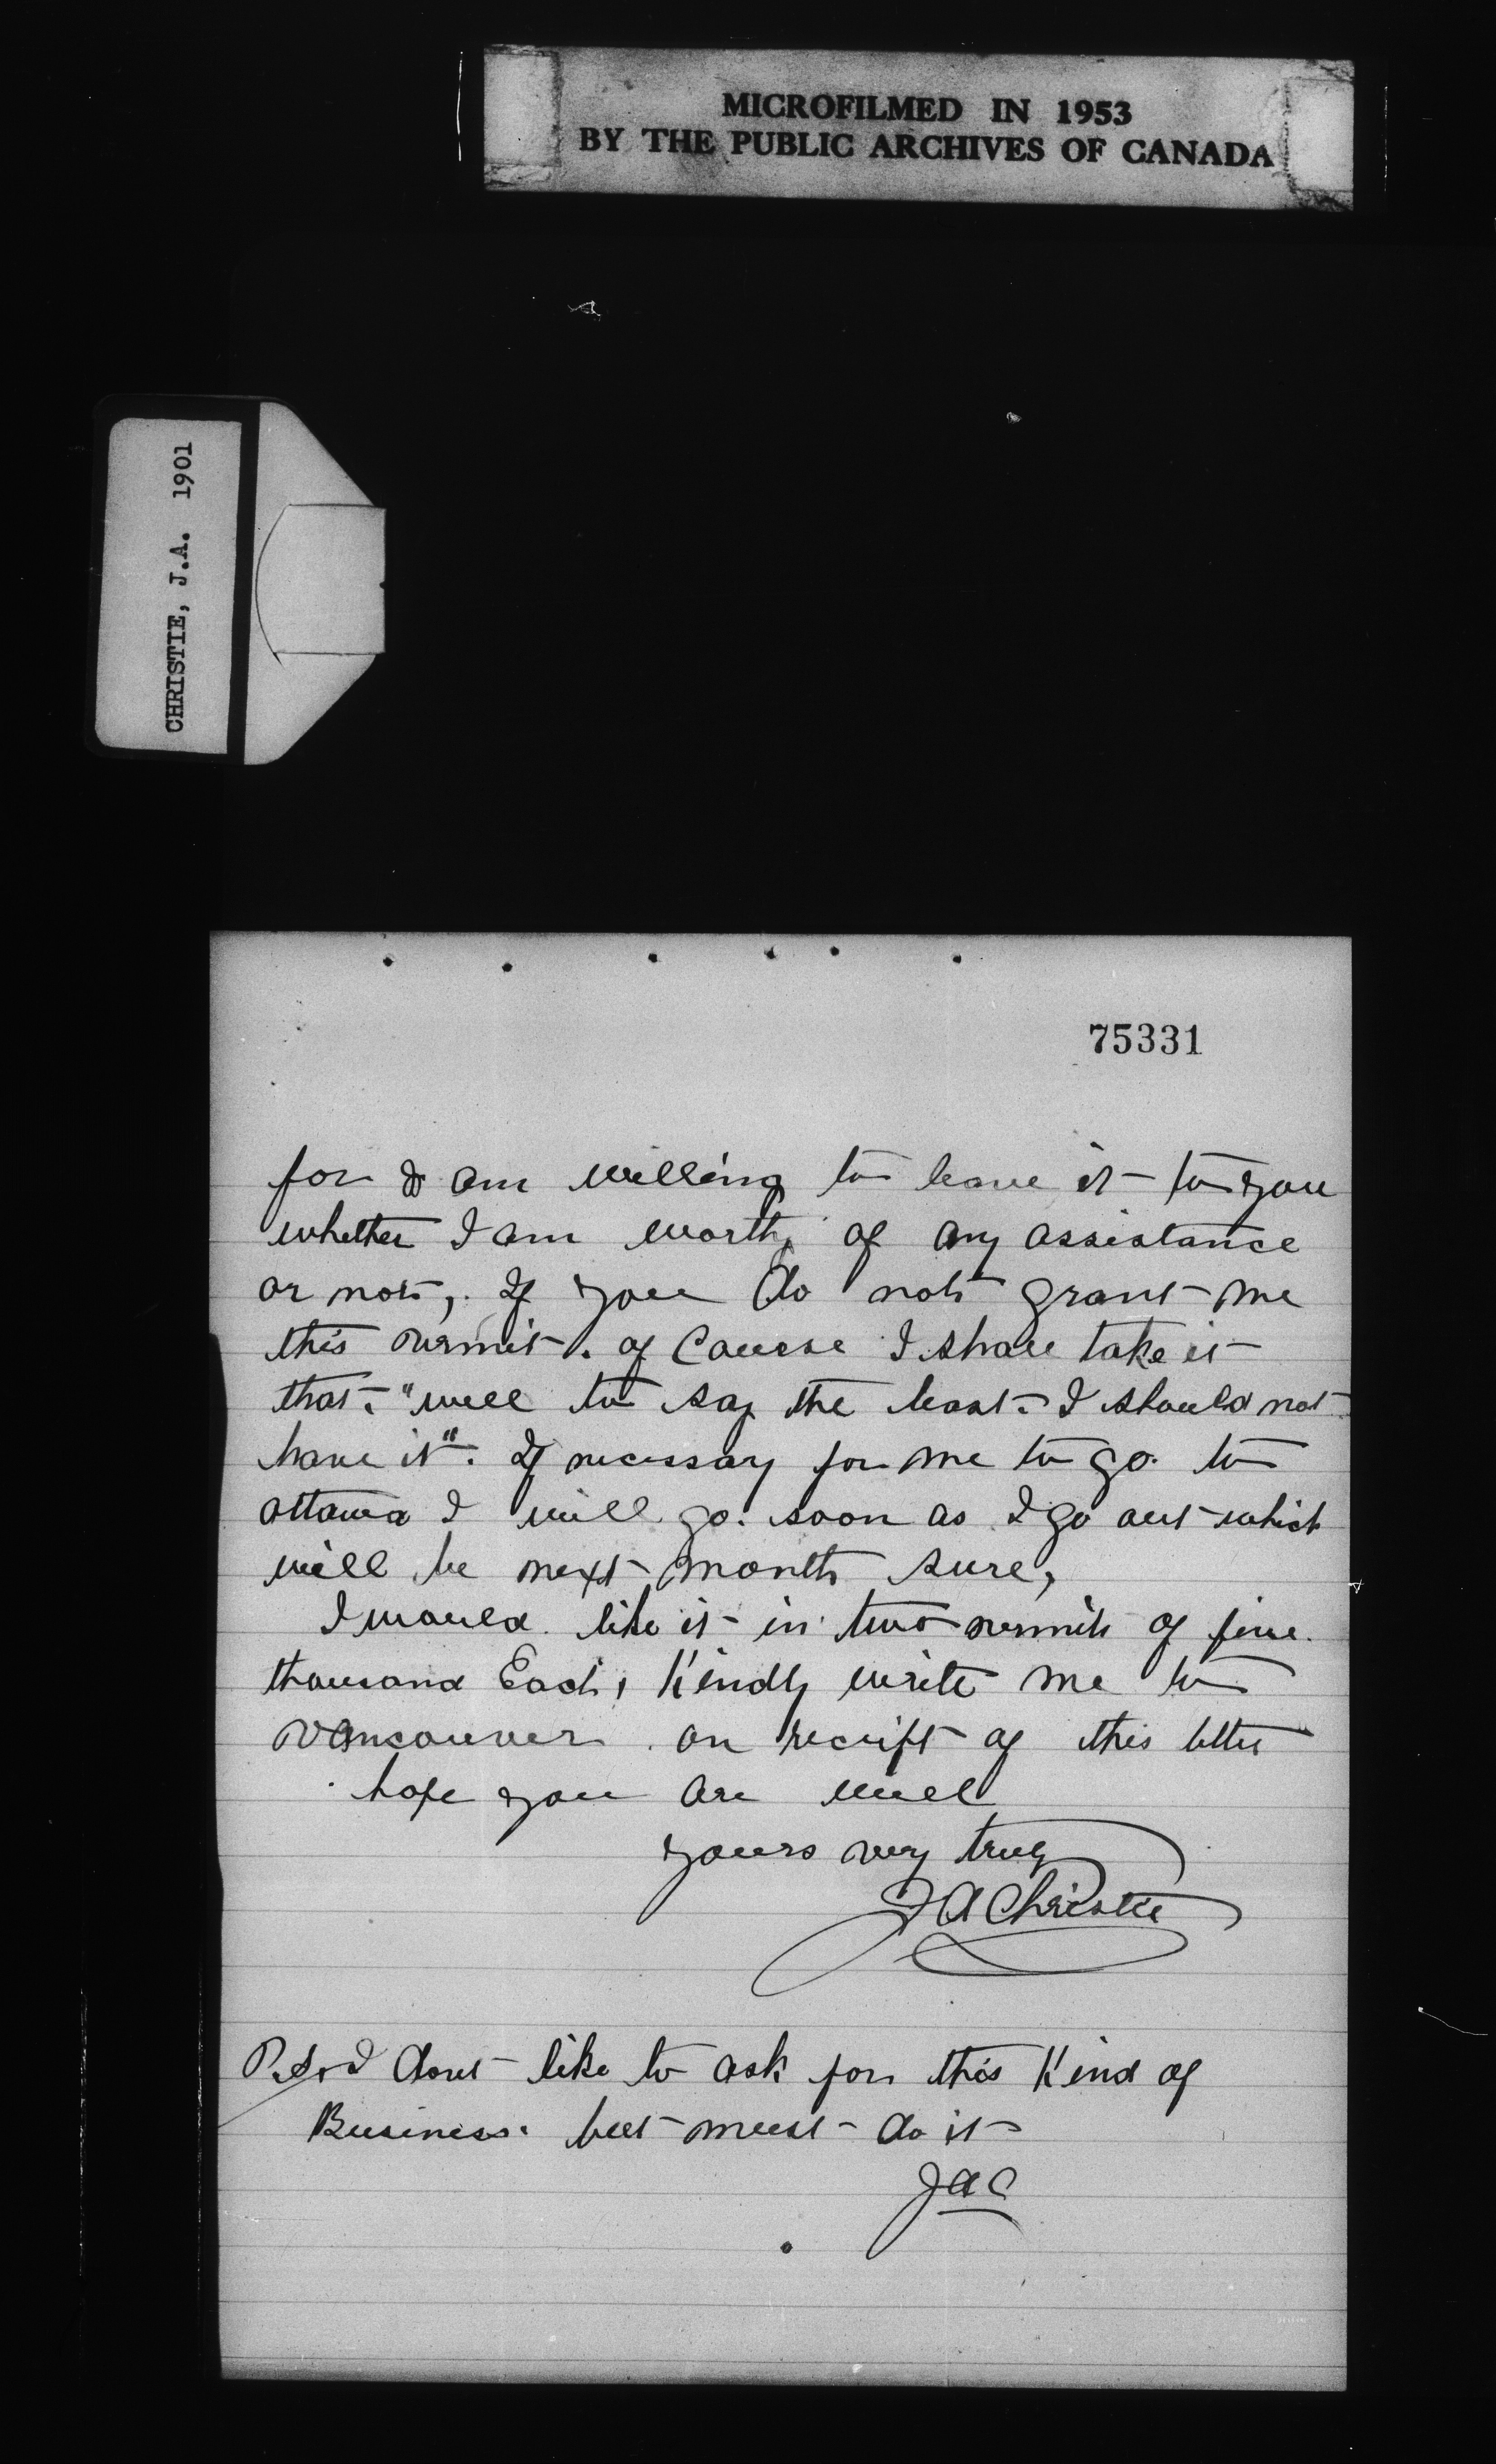 MICROFILMED IN 1953
BY THE PUBLIC ARCHIVES OF CANADA
CHRISTIE, J.A. 1901
75331
for I am willing to leave it to you
whether I am worthy of any assistance
or not, If you do not grant me
this permit. of Course I shall take it
that. "well to say the least. I should not
have it". If necessary for me to go to
Ottawa I will go. soon as I go out which
will be next month sure,
I would like it in two permits of five
thousand Each, Kindly write me to
Vancouver on receipt of this letter
hope you are well
yours very truly
J A Christie
P.S. I dont like to ask for this Kind of
Business. but must do it
JAC